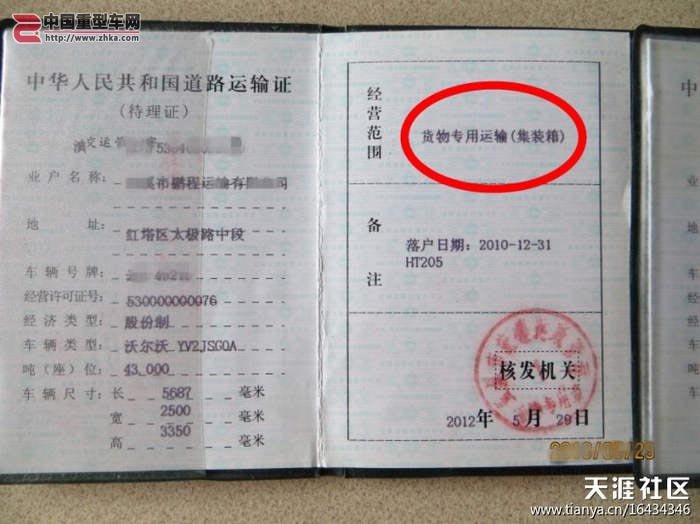 中国重型车网
www.zhka.com
中华人民共和国道路运输证
(待理证)
业户名称:
市鹏程运输有
地址:
红塔区太极路中段
车辆号牌:
经营许可证号: 530000000076
经济类型: 股份制
车辆类型: 沃尔沃 YV2JSG0A
吨(座)位: 43,000
车辆尺寸: 长 5687 毫米
宽 2500 毫米
高 3350 毫米
经营范围
货物专用运输(集装箱)
备注
落户日期: 2010-12-31
HT205
核发机关
2012年 5月 29日
天涯社区
www.tianya.cn/16434346